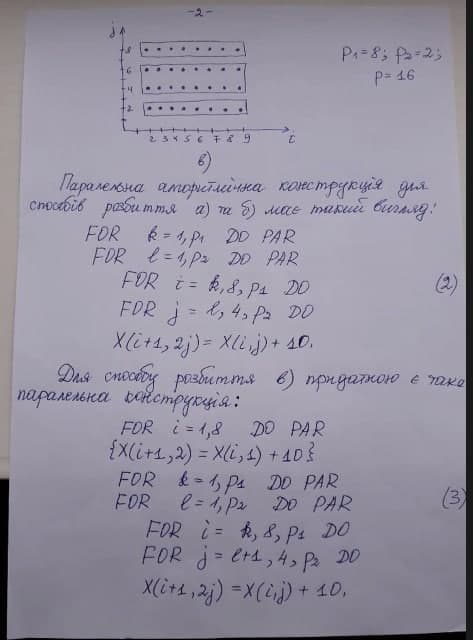 -2-
j
8
6
4
2
2 3 4 5 6 7 8 9 i
P1=8; P2=2;
P=16
в)
Паралельна алгоритмічна конструкція для
способів розбиття а) та б) має такий вигляд:
FOR k = 1, P1 DO PAR
FOR l = 1, P2 DO PAR
FOR i = k, 8, P1 DO
FOR j = l, 4, P2 DO
(2)
X(i+1, 2j) = X(i,j) + 10.
Для способу розбиття в) придатною є така
паралельна конструкція:
FOR i = 1, 8 DO PAR
{X(i+1, 2) = X(i, 1) + 10}
FOR k = 1, P1 DO PAR
FOR l = 1, P2 DO PAR
(3)
FOR i = k, 8, P1 DO
FOR j = l+1, 4, P2 DO
X(i+1, 2j) = X(i,j) + 10.